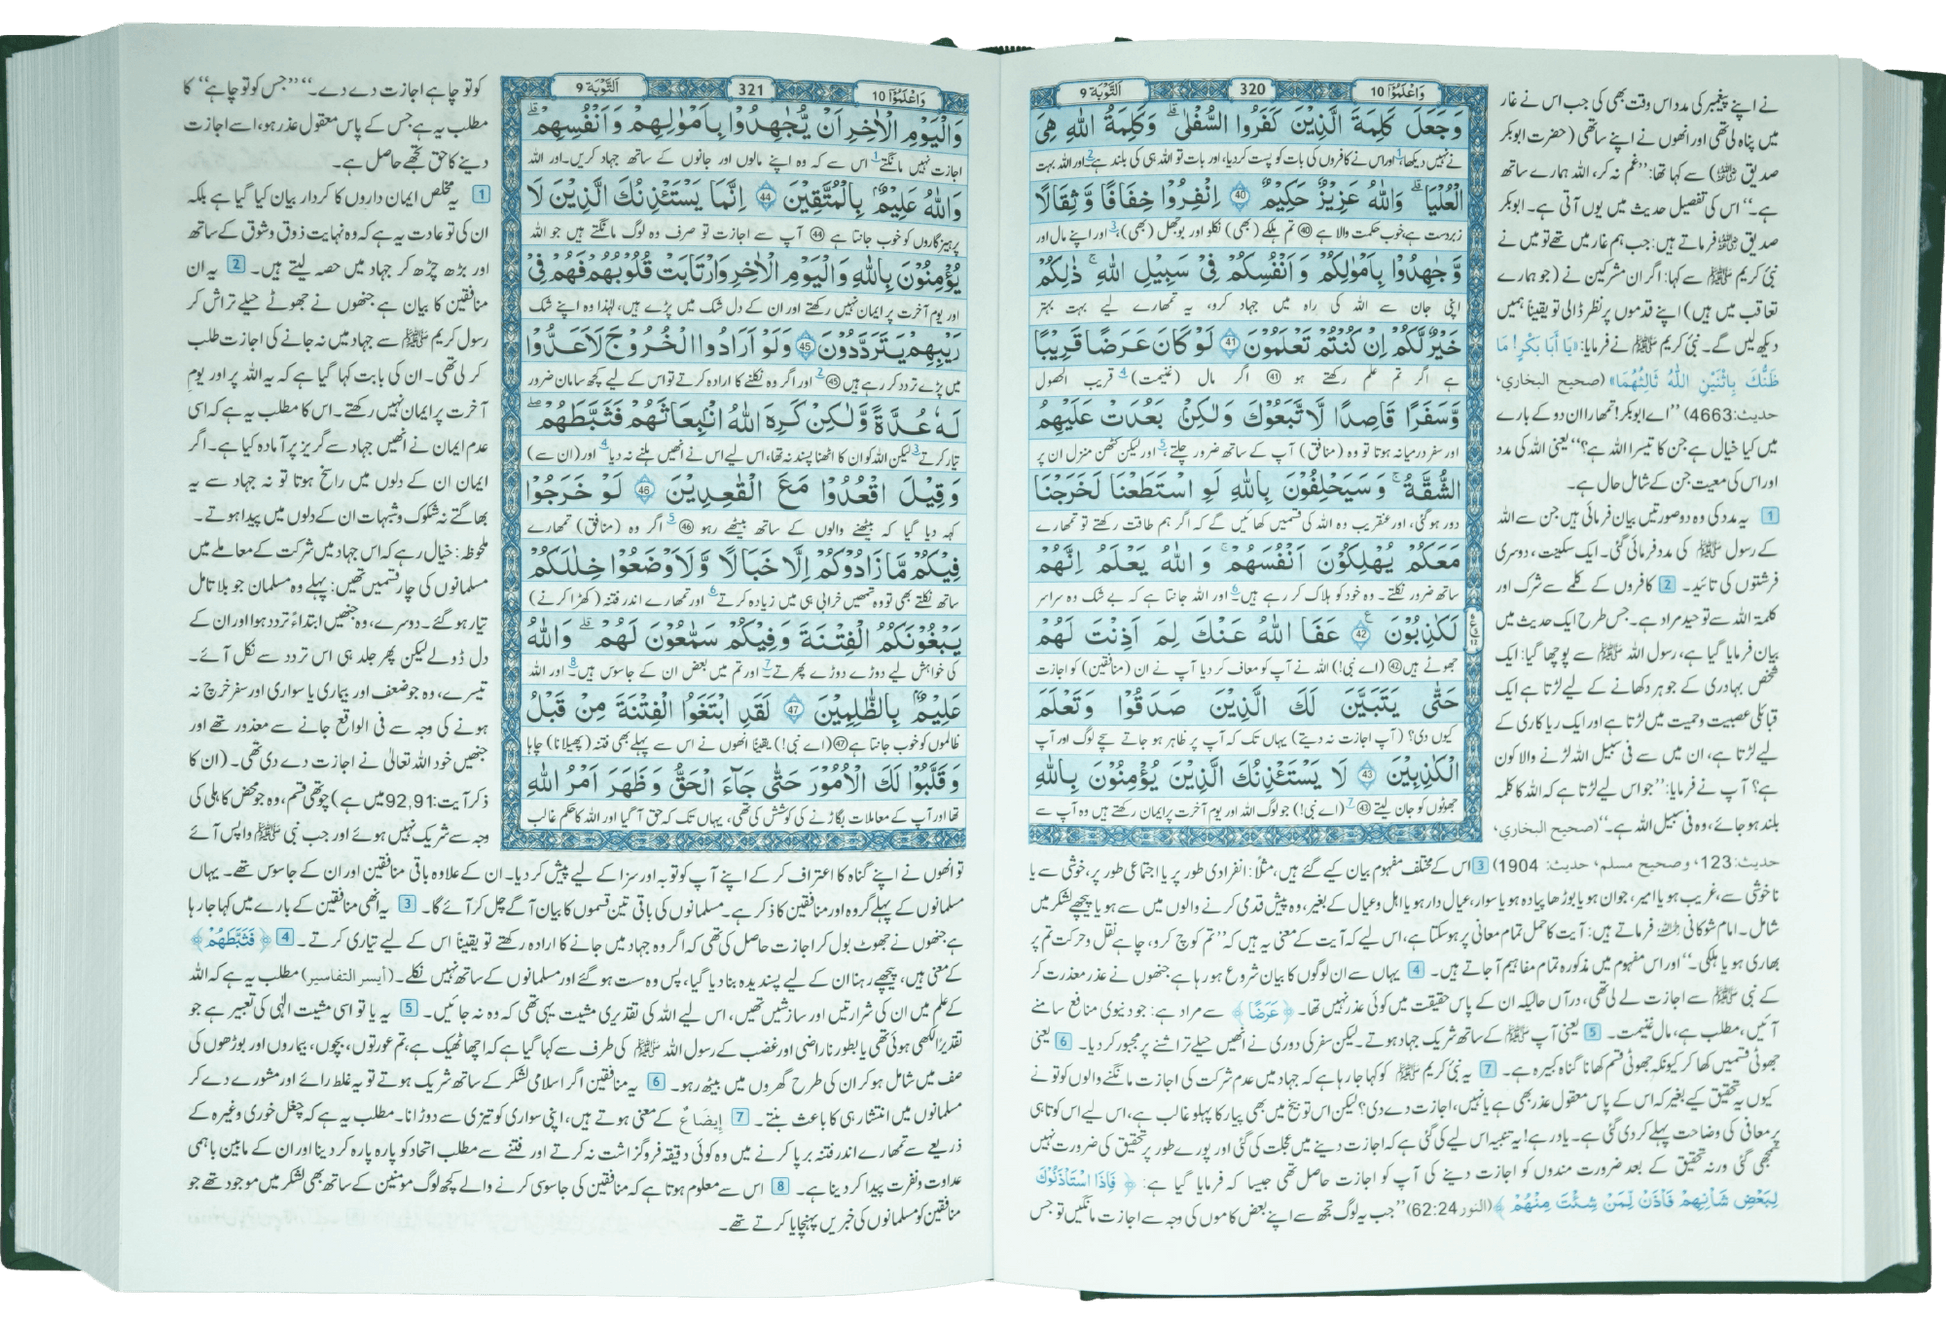 وَاعْلَمُوْٓا 10
320
اَلتَّوْبَة 9
نے اپنے پیغمبر کی مدد اس وقت بھی کی جب اس نے غار
میں پناہ لی تھی اور انھوں نے اپنے ساتھی (حضرت ابوبکر
صدیق ؓ) سے کہا تھا: ’’غم نہ کر، اللہ ہمارے ساتھ
ہے۔‘‘ اس کی تفصیل حدیث میں یوں آتی ہے۔ ابوبکر
صدیق ؓ فرماتے ہیں: جب ہم غار میں تھے تو میں نے
نبی کریم ﷺ سے کہا: اگر ان مشرکین نے (جو ہمارے
تعاقب میں ہیں) اپنے قدموں پر نظر ڈالی تو یقیناً ہمیں
دیکھ لیں گے۔ نبی کریم ﷺ نے فرمایا: «يَا أَبَا بَكْرٍ! مَا
ظَنُّكَ بِاثْنَيْنِ اللّٰهُ ثَالِثُهُمَا» (صحيح البخاري،
حديث:4663) ’’اے ابوبکر! تمھارا ان دو کے بارے
میں کیا خیال ہے جن کا تیسرا اللہ ہے؟‘‘ یعنی اللہ کی مدد
اور اس کی معیت جن کے شامل حال ہے۔
1 یہ مدد کی وہ دو صورتیں بیان فرمائی ہیں جن سے اللہ
کے رسول ﷺ کی مدد فرمائی گئی۔ ایک سکینت، دوسری
فرشتوں کی تائید۔ 2 کافروں کے کلمے سے شرک اور
کلمۃ اللہ سے توحید مراد ہے۔ جس طرح ایک حدیث میں
بیان فرمایا گیا ہے، رسول اللہ ﷺ سے پوچھا گیا: ایک
شخص بہادری کے جوہر دکھانے کے لیے لڑتا ہے ایک
قبائلی عصبیت و حمیت میں لڑتا ہے اور ایک ریاکاری کے
لیے لڑتا ہے، ان میں سے فی سبیل اللہ لڑنے والا کون
ہے؟ آپ نے فرمایا: ’’جو اس لیے لڑتا ہے کہ اللہ کا کلمہ
بلند ہو جائے، وہ فی سبیل اللہ ہے۔‘‘ (صحيح البخاري،
وَجَعَلَ كَلِمَةَ الَّذِيْنَ كَفَرُوا السُّفْلٰى ۭ وَكَلِمَةُ اللّٰهِ هِيَ
نے نہیں دیکھا،1 اور اس نے کافروں کی بات کو پست کر دیا، اور بات تو اللہ ہی کی بلند ہے2 اور اللہ بہت
الْعُلْيَا ۭ وَاللّٰهُ عَزِيْزٌ حَكِيْمٌ 40 اِنْفِرُوْا خِفَافًا وَّثِقَالًا
زبردست ہے، خوب حکمت والا ہے 40 تم ہلکے (بھی) نکلو اور بوجھل (بھی)،3 اور اپنے مال اور
وَّجَاهِدُوْا بِاَمْوَالِكُمْ وَاَنْفُسِكُمْ فِيْ سَبِيْلِ اللّٰهِ ۭ ذٰلِكُمْ
اپنی جان سے اللہ کی راہ میں جہاد کرو، یہ تمھارے لیے بہت بہتر
خَيْرٌ لَّكُمْ اِنْ كُنْتُمْ تَعْلَمُوْنَ 41 لَوْ كَانَ عَرَضًا قَرِيْبًا
ہے اگر تم علم رکھتے ہو 41 اگر مال (غنیمت)4 قریب الحصول
وَّسَفَرًا قَاصِدًا لَّاتَّبَعُوْكَ وَلٰكِنْۢ بَعُدَتْ عَلَيْهِمُ
اور سفر درمیانہ ہوتا تو وہ (منافق) آپ کے ساتھ ضرور چلتے،5 اور لیکن کٹھن منزل ان پر
الشُّقَّةُ ۭ وَسَيَحْلِفُوْنَ بِاللّٰهِ لَوِ اسْتَطَعْنَا لَخَرَجْنَا
دور ہو گئی، اور عنقریب وہ اللہ کی قسمیں کھائیں گے کہ اگر ہم طاقت رکھتے تو تمھارے
مَعَكُمْ يُهْلِكُوْنَ اَنْفُسَهُمْ ۚ وَاللّٰهُ يَعْلَمُ اِنَّهُمْ
ساتھ ضرور نکلتے۔ وہ خود کو ہلاک کر رہے ہیں۔6 اور اللہ جانتا ہے کہ بے شک وہ سراسر
لَكٰذِبُوْنَ 42 عَفَا اللّٰهُ عَنْكَ لِمَ اَذِنْتَ لَهُمْ
جھوٹے ہیں 42 (اے نبی!) اللہ نے آپ کو معاف کر دیا آپ نے ان (منافقین) کو اجازت
حَتّٰى يَتَبَيَّنَ لَكَ الَّذِيْنَ صَدَقُوْا وَتَعْلَمَ
کیوں دی؟ (آپ اجازت نہ دیتے) یہاں تک کہ آپ پر ظاہر ہو جاتے سچے لوگ اور آپ
الْكٰذِبِيْنَ 43 لَا يَسْتَئْذِنُكَ الَّذِيْنَ يُؤْمِنُوْنَ بِاللّٰهِ
جھوٹوں کو جان لیتے 43 (اے نبی!)7 جو لوگ اللہ اور یوم آخرت پر ایمان رکھتے ہیں وہ آپ سے
حديث:123، وصحيح مسلم، حديث: 1904) 3 اس کے مختلف مفہوم بیان کیے گئے ہیں، مثلاً: انفرادی طور پر یا اجتماعی طور پر، خوشی سے یا
ناخوشی سے، غریب ہو یا امیر، جوان ہو یا بوڑھا پیادہ ہو یا سوار، عیال دار ہو یا اہل و عیال کے بغیر، وہ پیش قدمی کرنے والوں میں سے ہو یا پیچھے لشکر میں
شامل۔ امام شوکانی رحمہ اللہ فرماتے ہیں: آیت کا حمل تمام معانی پر ہو سکتا ہے، اس لیے کہ آیت کے معنی یہ ہیں کہ ’’تم کوچ کرو، چاہے نقل و حرکت تم پر
بھاری ہو یا ہلکی۔‘‘ اور اس مفہوم میں مذکورہ تمام مفاہیم آ جاتے ہیں۔ 4 یہاں سے ان لوگوں کا بیان شروع ہو رہا ہے جنھوں نے عذر معذرت کر
کے نبی ﷺ سے اجازت لے لی تھی، درآں حالیکہ ان کے پاس حقیقت میں کوئی عذر نہیں تھا۔ ﴿عَرَضًا﴾ سے مراد ہے: جو دنیوی منافع سامنے
آئیں، مطلب ہے، مال غنیمت۔ 5 یعنی آپ ﷺ کے ساتھ شریک جہاد ہوتے۔ لیکن سفر کی دوری نے انھیں حیلے تراشنے پر مجبور کر دیا۔ 6 یعنی
جھوٹی قسمیں کھا کر کیونکہ جھوٹی قسم کھانا گناہ کبیرہ ہے۔ 7 یہ نبی کریم ﷺ کو کہا جا رہا ہے کہ جہاد میں عدم شرکت کی اجازت مانگنے والوں کو تو نے
کیوں یہ تحقیق کیے بغیر کہ اس کے پاس معقول عذر بھی ہے یا نہیں، اجازت دے دی؟ لیکن اس توبیخ میں بھی پیار کا پہلو غالب ہے، اس لیے اس کوتاہی
پر معافی کی وضاحت پہلے کر دی گئی ہے۔ یاد رہے! یہ تنبیہ اس لیے کی گئی ہے کہ اجازت دینے میں عجلت کی گئی اور پورے طور پر تحقیق کی ضرورت نہیں
سمجھی گئی ورنہ تحقیق کے بعد ضرورت مندوں کو اجازت دینے کی آپ کو اجازت حاصل تھی جیسا کہ فرمایا گیا ہے: ﴿فَاِذَا اسْتَاْذَنُوْكَ
لِبَعْضِ شَاْنِهِمْ فَاْذَنْ لِّمَنْ شِئْتَ مِنْهُمْ﴾ (النور 62:24) ’’جب یہ لوگ تجھ سے اپنے بعض کاموں کی وجہ سے اجازت مانگیں تو جس
وَاعْلَمُوْٓا 10
321
اَلتَّوْبَة 9
وَالْيَوْمِ الْاٰخِرِ اَنْ يُّجَاهِدُوْا بِاَمْوَالِهِمْ وَاَنْفُسِهِمْ ۭ
اجازت نہیں مانگتے1 اس سے کہ وہ اپنے مالوں اور جانوں کے ساتھ جہاد کریں۔ اور اللہ
وَاللّٰهُ عَلِيْمٌۢ بِالْمُتَّقِيْنَ 44 اِنَّمَا يَسْتَئْذِنُكَ الَّذِيْنَ لَا
پرہیزگاروں کو خوب جانتا ہے 44 آپ سے اجازت تو صرف وہ لوگ مانگتے ہیں جو اللہ
يُؤْمِنُوْنَ بِاللّٰهِ وَالْيَوْمِ الْاٰخِرِ وَارْتَابَتْ قُلُوْبُهُمْ فَهُمْ فِيْ
اور یوم آخرت پر ایمان نہیں رکھتے اور ان کے دل شک میں پڑے ہیں، لہٰذا وہ اپنے شک
رَيْبِهِمْ يَتَرَدَّدُوْنَ 45 وَلَوْ اَرَادُوا الْخُرُوْجَ لَاَعَدُّوْا
میں پڑے تردد کر رہے ہیں 45 2 اور اگر وہ نکلنے کا ارادہ کرتے تو اس کے لیے کچھ سامان ضرور
لَهٗ عُدَّةً وَّلٰكِنْ كَرِهَ اللّٰهُ انْۢبِعَاثَهُمْ فَثَبَّطَهُمْ
تیار کرتے3 لیکن اللہ کو ان کا اٹھنا پسند نہ تھا، اس لیے اس نے انھیں ہلنے نہ دیا4 اور (ان سے)
وَقِيْلَ اقْعُدُوْا مَعَ الْقٰعِدِيْنَ 46 لَوْ خَرَجُوْا
کہہ دیا گیا کہ بیٹھنے والوں کے ساتھ بیٹھے رہو 46 5 اگر وہ (منافق) تمھارے
فِيْكُمْ مَّا زَادُوْكُمْ اِلَّا خَبَالًا وَّلَاَوْضَعُوْا خِلٰلَكُمْ
ساتھ نکلتے بھی تو وہ تمھیں خرابی ہی میں زیادہ کرتے6 اور تمھارے اندر فتنہ (کھڑا کرنے)
يَبْغُوْنَكُمُ الْفِتْنَةَ وَفِيْكُمْ سَمّٰعُوْنَ لَهُمْ ۭ وَاللّٰهُ
کی خواہش لیے دوڑے دوڑے پھرتے۔7 اور تم میں بعض ان کے جاسوس ہیں۔8 اور اللہ
عَلِيْمٌۢ بِالظّٰلِمِيْنَ 47 لَقَدِ ابْتَغَوُا الْفِتْنَةَ مِنْ قَبْلُ
ظالموں کو خوب جانتا ہے 47 (اے نبی!) یقیناً انھوں نے اس سے پہلے بھی فتنہ (پھیلانا) چاہا
وَقَلَّبُوْا لَكَ الْاُمُوْرَ حَتّٰى جَآءَ الْحَقُّ وَظَهَرَ اَمْرُ اللّٰهِ
تھا اور آپ کے معاملات بگاڑنے کی کوشش کی تھی، یہاں تک کہ حق آ گیا اور اللہ کا حکم غالب
کو تو چاہے اجازت دے دے۔‘‘ ’’جس کو تو چاہے‘‘ کا
مطلب یہ ہے جس کے پاس معقول عذر ہو، اسے اجازت
دینے کا حق تجھے حاصل ہے۔
1 یہ مخلص ایمان داروں کا کردار بیان کیا گیا ہے بلکہ
ان کی تو عادت یہ ہے کہ وہ نہایت ذوق و شوق کے ساتھ
اور بڑھ چڑھ کر جہاد میں حصہ لیتے ہیں۔ 2 یہ ان
منافقین کا بیان ہے جنھوں نے جھوٹے حیلے تراش کر
رسول کریم ﷺ سے جہاد میں نہ جانے کی اجازت طلب
کر لی تھی۔ ان کی بابت کہا گیا ہے کہ یہ اللہ پر اور یوم
آخرت پر ایمان نہیں رکھتے۔ اس کا مطلب یہ ہے کہ اسی
عدم ایمان نے انھیں جہاد سے گریز پر آمادہ کیا ہے۔ اگر
ایمان ان کے دلوں میں راسخ ہوتا تو نہ جہاد سے یہ
بھاگتے نہ شکوک و شبہات ان کے دلوں میں پیدا ہوتے۔
ملحوظہ: خیال رہے کہ اس جہاد میں شرکت کے معاملے میں
مسلمانوں کی چار قسمیں تھیں: پہلے وہ مسلمان جو بلا تامل
تیار ہو گئے۔ دوسرے، وہ جنھیں ابتداءً تردد ہوا اور ان کے
دل ڈولے لیکن پھر جلد ہی اس تردد سے نکل آئے۔
تیسرے، وہ جو ضعف اور بیماری یا سواری اور سفر خرچ نہ
ہونے کی وجہ سے فی الواقع جانے سے معذور تھے اور
جنھیں خود اللہ تعالیٰ نے اجازت دے دی تھی۔ (ان کا
ذکر آیت: 92,91 میں ہے) چوتھی قسم، وہ جو محض کاہلی کی
وجہ سے شریک نہیں ہوئے اور جب نبی ﷺ واپس آئے
تو انھوں نے اپنے گناہ کا اعتراف کر کے اپنے آپ کو توبہ اور سزا کے لیے پیش کر دیا۔ ان کے علاوہ باقی منافقین اور ان کے جاسوس تھے۔ یہاں
مسلمانوں کے پہلے گروہ اور منافقین کا ذکر ہے۔ مسلمانوں کی باقی تین قسموں کا بیان آگے چل کر آئے گا۔ 3 یہ انھی منافقین کے بارے میں کہا جا رہا
ہے جنھوں نے جھوٹ بول کر اجازت حاصل کی تھی کہ اگر وہ جہاد میں جانے کا ارادہ رکھتے تو یقیناً اس کے لیے تیاری کرتے۔ 4 ﴿فَثَبَّطَهُمْ﴾
کے معنی ہیں، پیچھے رہنا ان کے لیے پسندیدہ بنا دیا گیا، پس وہ سست ہو گئے اور مسلمانوں کے ساتھ نہیں نکلے۔ (أيسر التفاسير) مطلب یہ ہے کہ اللہ
کے علم میں ان کی شرارتیں اور سازشیں تھیں، اس لیے اللہ کی تقدیری مشیت یہی تھی کہ وہ نہ جائیں۔ 5 یہ یا تو اسی مشیت الٰہی کی تعبیر ہے جو
تقدیراً لکھی ہوئی تھی یا بطور ناراضی اور غضب کے رسول اللہ ﷺ کی طرف سے کہا گیا ہے کہ اچھا ٹھیک ہے، تم عورتوں، بچوں، بیماروں اور بوڑھوں کی
صف میں شامل ہو کر ان کی طرح گھروں میں بیٹھ رہو۔ 6 یہ منافقین اگر اسلامی لشکر کے ساتھ شریک ہوتے تو یہ غلط رائے اور مشورے دے کر
مسلمانوں میں انتشار ہی کا باعث بنتے۔ 7 إِيضَاعٌ کے معنی ہوتے ہیں، اپنی سواری کو تیزی سے دوڑانا۔ مطلب یہ ہے کہ چغل خوری وغیرہ کے
ذریعے سے تمھارے اندر فتنہ برپا کرنے میں وہ کوئی دقیقہ فروگزاشت نہ کرتے اور فتنے سے مطلب اتحاد کو پارہ پارہ کر دینا اور ان کے مابین باہمی
عداوت و نفرت پیدا کر دینا ہے۔ 8 اس سے معلوم ہوتا ہے کہ منافقین کی جاسوسی کرنے والے کچھ لوگ مومنین کے ساتھ بھی لشکر میں موجود تھے جو
منافقین کو مسلمانوں کی خبریں پہنچایا کرتے تھے۔